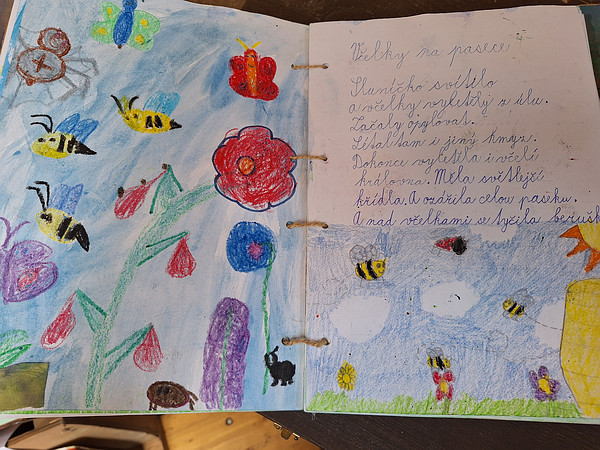 Včelky na pasece
Sluníčko svítilo
a včelky vyletěly z úlu.
Začaly opylovat.
Lítal tam i jiný hmyz.
Dokonce vyletěla i včelí
královna. Měla světlejší
křídla. A ozářila celou paseku.
A nad včelkami se tyčila